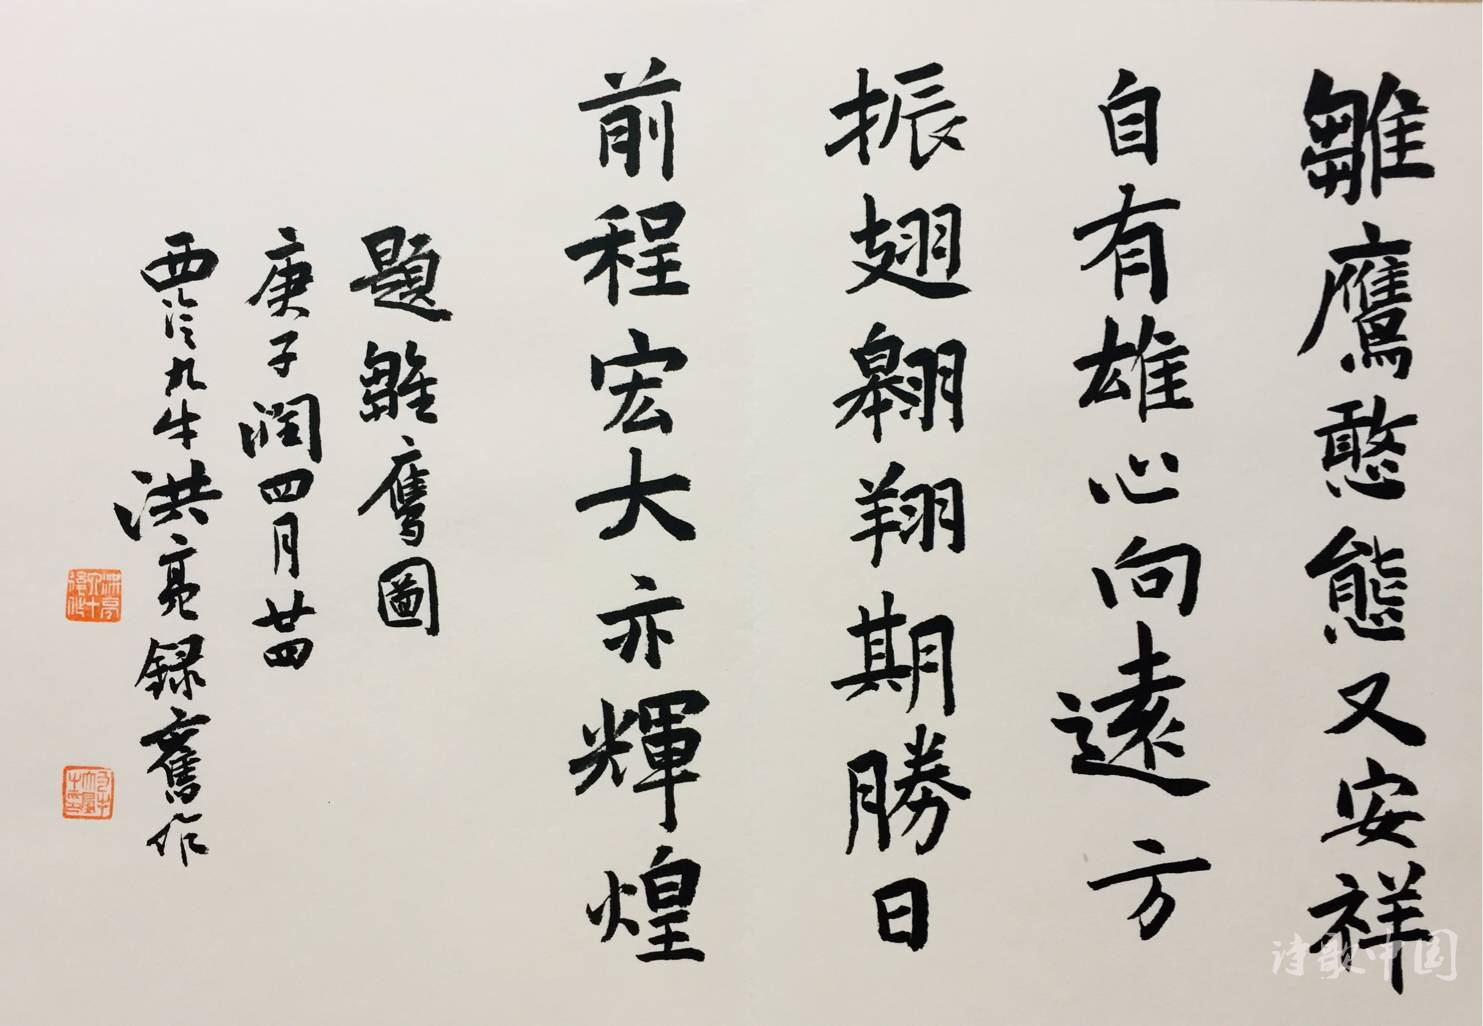 雛鷹憨態又安祥
自有雄心向遠方
振翅翱翔期勝日
前程宏大亦輝煌
題雛鷹圖
庚子潤四月廿四
西泠九牛洪亮録舊作
诗歌中国